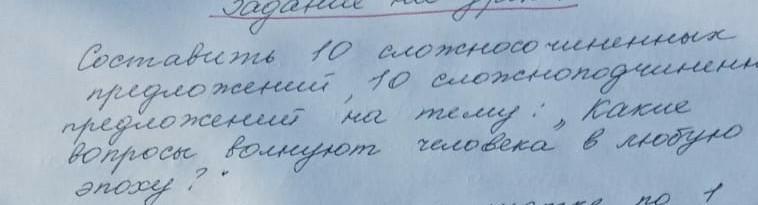 Задание на
Составить 10 сложносочиненных
предложений, 10 сложноподчиненн
предложений на тему: „Какие
вопросы волнуют человека в любую
эпоху?"
по 1